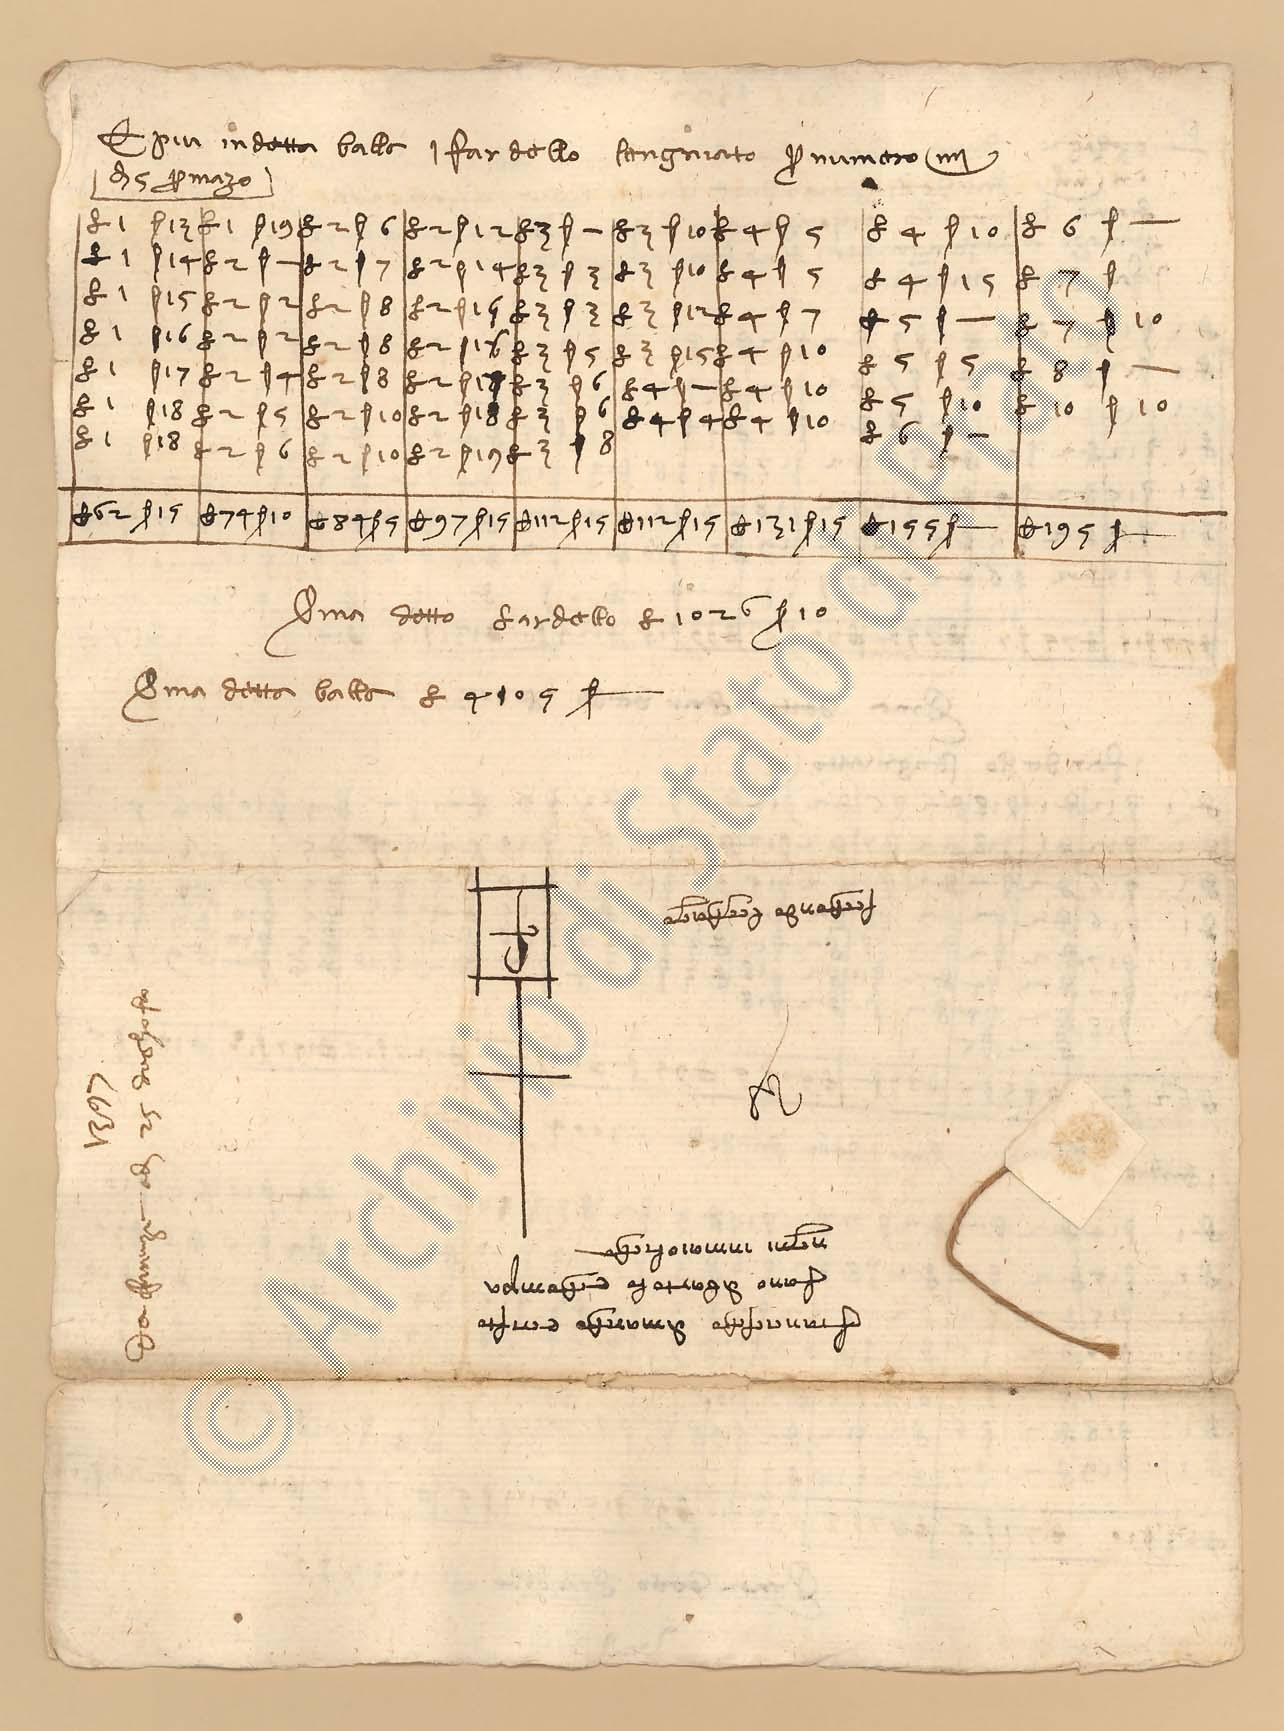 E piu in detta balla 1 fardello sengniato per numero IIII
di 5 per mazo
£ 1 s 13 £ 1 s 19 £ 2 s 6 £ 2 s 12 £ 3 s — £ 3 s 10 £ 4 s 5 £ 4 s 10 £ 6 s —
£ 1 s 14 £ 2 s — £ 2 s 7 £ 2 s 14 £ 3 s 3 £ 3 s 10 £ 4 s 5 £ 4 s 15 £ 7 s
£ 1 s 15 £ 2 s 2 £ 2 s 8 £ 2 s 15 £ 3 s 3 £ 3 s 12 £ 4 s 7 £ 5 s — £ 7 s 10
£ 1 s 16 £ 2 s 2 £ 2 s 8 £ 2 s 16 £ 3 s 5 £ 3 s 15 £ 4 s 10 £ 5 s 5 £ 8 s —
£ 1 s 17 £ 2 s 4 £ 2 s 8 £ 2 s 18 £ 3 s 6 £ 4 s — £ 4 s 10 £ 5 s 10 £ 10 s 10
£ 1 s 18 £ 2 s 5 £ 2 s 10 £ 2 s 18 £ 3 s 6 £ 4 s 4 £ 4 s 10 £ 6 s —
£ 1 s 18 £ 2 s 6 £ 2 s 10 £ 2 s 19 £ 3 s 8
£ 62 s 15 £ 74 s 10 £ 84 s 5 £ 97 s 15 £ 112 s 15 £ 112 s 15 £ 131 s 15 £ 155 s — £ 195 s —
Soma detto fardello £ 1026 s 10
Soma detta balla £ 4105 s —
Francescho di marcho e cristo
fano di bartolo e chompa
ngni in maiolicha
1397